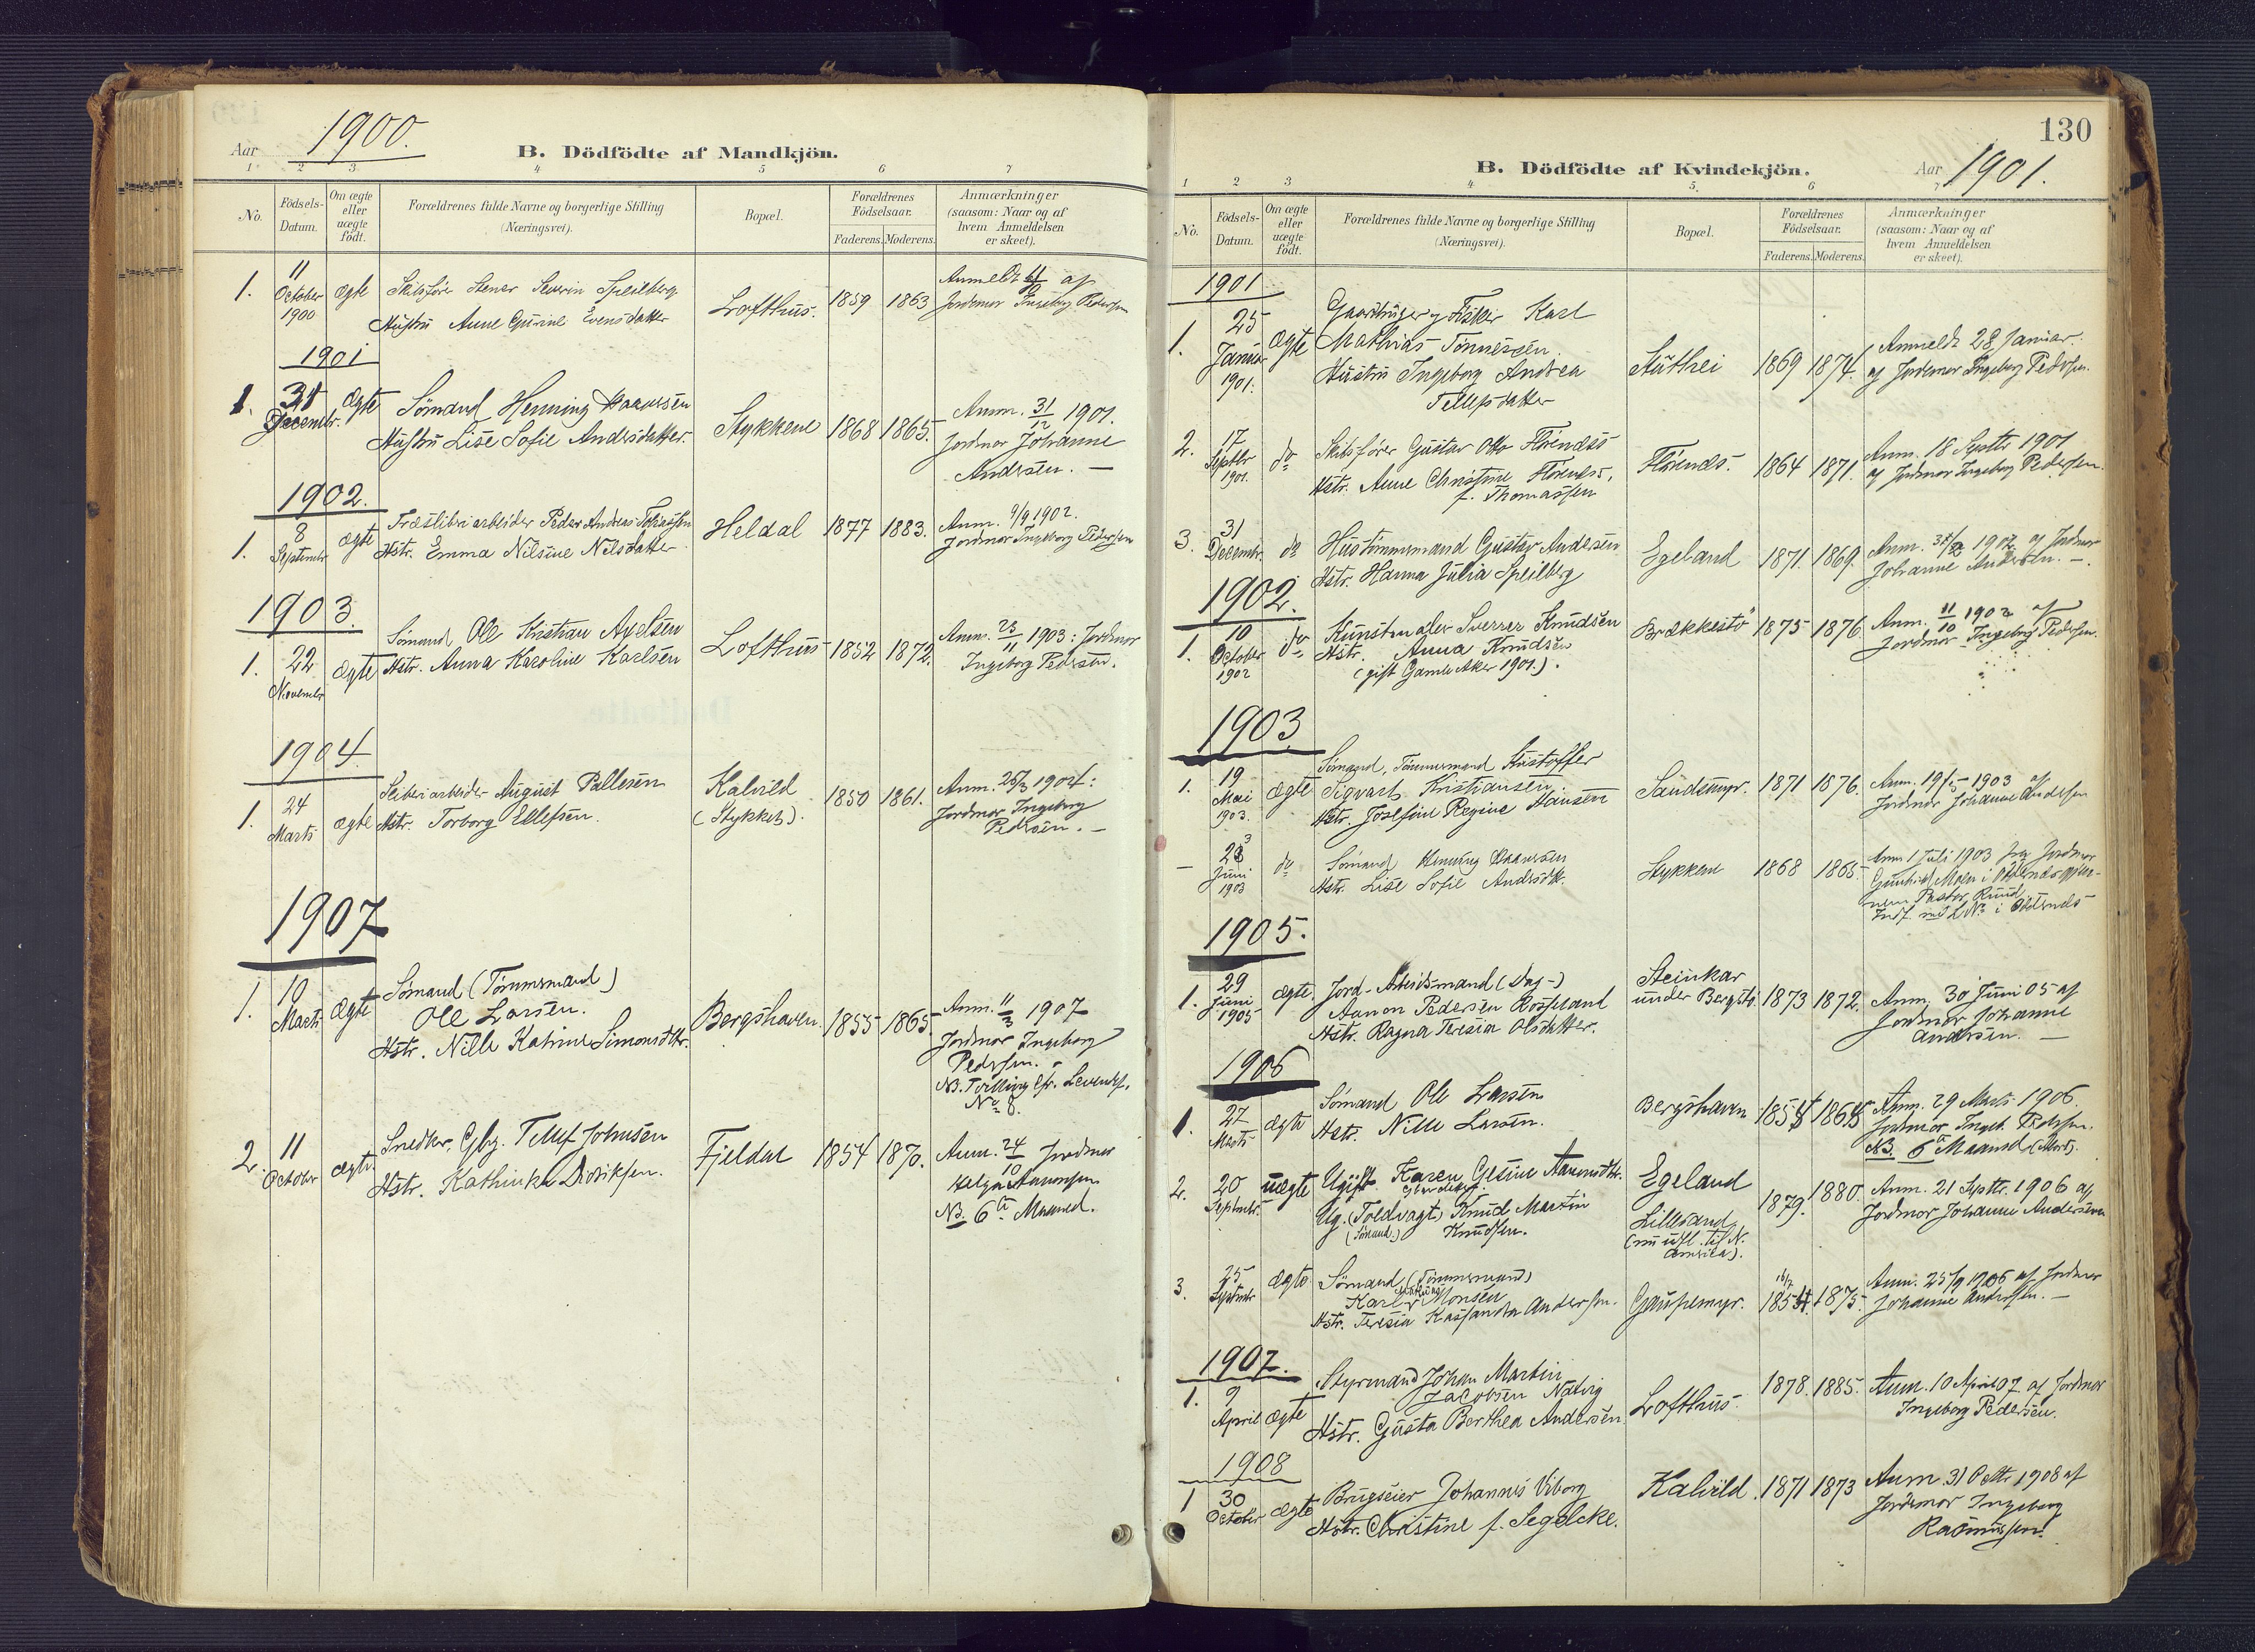 Aar 1900.
B. Dödfödte af Mandkjön.
1 2 3. 4 5 6 7
No.
Födsels-
Datum.
Om ægte
eller
uægte
födt.
Forældrenes fulde Navne og borgerlige Stilling
(Næringsvei).
Bopæl.
Forældrenes
Födselsaar.
Faderens. Moderens.
Anmærkninger
(saasom: Naar og af
hvem Anmeldelsen
er skeet).
1.
11
October
1900
ægte
Skibsfører Severin Speilberg
Hustru Anne Gurine Evensdatter
Lofthus.
1859 1863
Anmeldt af
Jordemor Ingeborg Pedersen
1901
1.
31
Decembr.
Ægte
Sömand Henning
Hustru Lise Sofie Andersdatter.
Stykkene
1868 1865.
Anm. 31/12 1901.
Jordmor Johanne
Andersen. —
1902.
1.
8
September
ægte
Træsliberiarbeider Peder Andreas Tobiassen
Hstr. Emma Nilsine Nilsdatter
Heldal
1877 1883.
Anm. 9/9 1902.
Jordmor Ingeborg Pedersen
1903.
1.
22
November
ægte
Sömand Ole Kristian Axelsen
Hstr. Anna Karoline Karlsen
Lofthus
1852 1872.
Anm. 23/11 1903: Jordmor
Ingeborg Pedersen.
1904.
1.
24
Marts
ægte
Sliberiarbeider August Pallesen
Hstr. Torborg Ellefsen.
Kalvild
(Stykket).
1850 1861.
Anm. 25/3 1904:
Jordmor Ingeborg
Pedersen. —
1907
1.
10
Marts
Ægte
Sömand (Tömmermand)
Ole Larsen.
Hstr. Nille Katrine Simonsdtr.
Bergshaven.
1855 1865.
Anm. 11/3 1907
Jordmor Ingeborg
Pedersen. -
NB. Tvilling cfr. Levendef.
No 8.
2.
11
October
ægte
Snedker, Gbg. Tellef Johnsen
Hstr. Kathinka Didriksen.
Fjeldal
1854 1870.
Anm. 24/10 Jordmor
Helga Aanonsen
NB. 6te Maaned.
130
B. Dödfödte af Kvindekjön.
Aar 1901.
1 2 3 4 5. 6 7
No.
Födsels-
Datum.
Om ægte
eller
uægte
födt.
Forældrenes fulde Navne og borgerlige Stilling
(Næringsvei).
Bopæl.
Forældrenes
Födselsaar.
Faderens. Moderens.
Anmærkninger
(saasom: Naar og af
hvem Anmeldelsen
er skeet).
1901
1.
25
Januar
1901.
ægte
Gaardbruger og Fisker Karl
Mathias Tönnesen.
Hustru Ingeborg Andrea
Tellefsdatter
1869 1874.
Anmeldt 28 Januar.
af Jordemor Ingeborg Pedersen.
2.
17
Septbr
1901.
do
Skibsfører Gustav Otto Flörenæs
Hstr. Anne Christine Flörenæs,
f. Thomassen
Flörenæs.
1864 1871.
Anm. 18 Septbr 1901
af Jordmor Ingeborg Pedersen.
3.
31
Decembr.
do
Hustömmermand Gustav Andersen
Hstr. Hanna Julia Speilberg
Egeland
1871. 1869.
Anm. 1902 af Jordmor
Johanne Andersen. —.
1902.
1.
10
October
1902
do
Kunstmaler Sverre Knudsen
Hstr. Anna Knudsen
(gift Gamle Aker 1901).
Brækkestö
1875 1876.
Anm. 11/10 1902 af
Jordmor Ingeborg Pedersen.
1903
1.
19
Mai
1903.
ægte
Sömand, Tömmermand Kristoffer
Sigvart Kristiansen
Hstr. Josefine Regine Hansen
Sandsmyr.
1871 1876.
Anm. 19/5 1903 af
Jordmor Johanne Andersen
—
23
Juni
1903
do
Sömand Henning
Hstr. Lise Sofie Andersdtr.
Stykkene
1868 1865.
Anm 1 Juli 1903 fra Jordmor
Gunhild Moen i gjen-
nem Pastor Ruud
1905.
1.
29
Juni
1905
ægte.
Jord-Arbeidsmand (Dag-)
Aanon Pedersen Rosseland
Hstr. Ragna Teresia Olsdatter.
Steinkar
under Bergstö.
1873 1872.
Anm. 30 Juni 05 af
Jordmor Johanne
Andersen. —
1906
1.
27
Marts
ægte
Sömand Ole Larsen
Hstr. Nille Larsen.
Bergshaven
1855 1865
Anm. 29 Marts 1906.
Jordmor Ingeb. Pedersen.
NB. 6te Maaned
2.
20
Septembr.
uægte
Ugift Karen Gesine Aanonsdtr.
Ug. (Toldvagt) Knud Martin
(Sömand.) Knudsen.
Egeland
Lillesand
(nu udfl. til N.
Amerika).
1879. 1880.
Anm. 21 Septbr. 1906 af
Jordmor Johanne Andersen
3.
25
Septembr
ægte
Sömand, (Tömmermand)
Karl Monsen
Hstr. Teresia Kassandra Andersen.
Gaupemyr.
16/7
1854. 1875.
Anm. 25/9 1906 af Jordmor
Johanne Andersen. —
1907.
1.
9
April
ægte
Styrmand Johan Martin
Jacobsen Natvig
Hstr. Gusta Berthea Andersen.
Lofthus.
1878. 1885.
Anm. 10 April 07 af Jordmor
Ingeborg Pedersen.
1908
1
30
October
ægte
Brugseier Johannes Viborg
Hstr. Christine f. Segelcke.
Kalvild.
1871 1873
Anm. 31 Octbr 1908 af
Jordemor Ingeborg
Rasmussen.